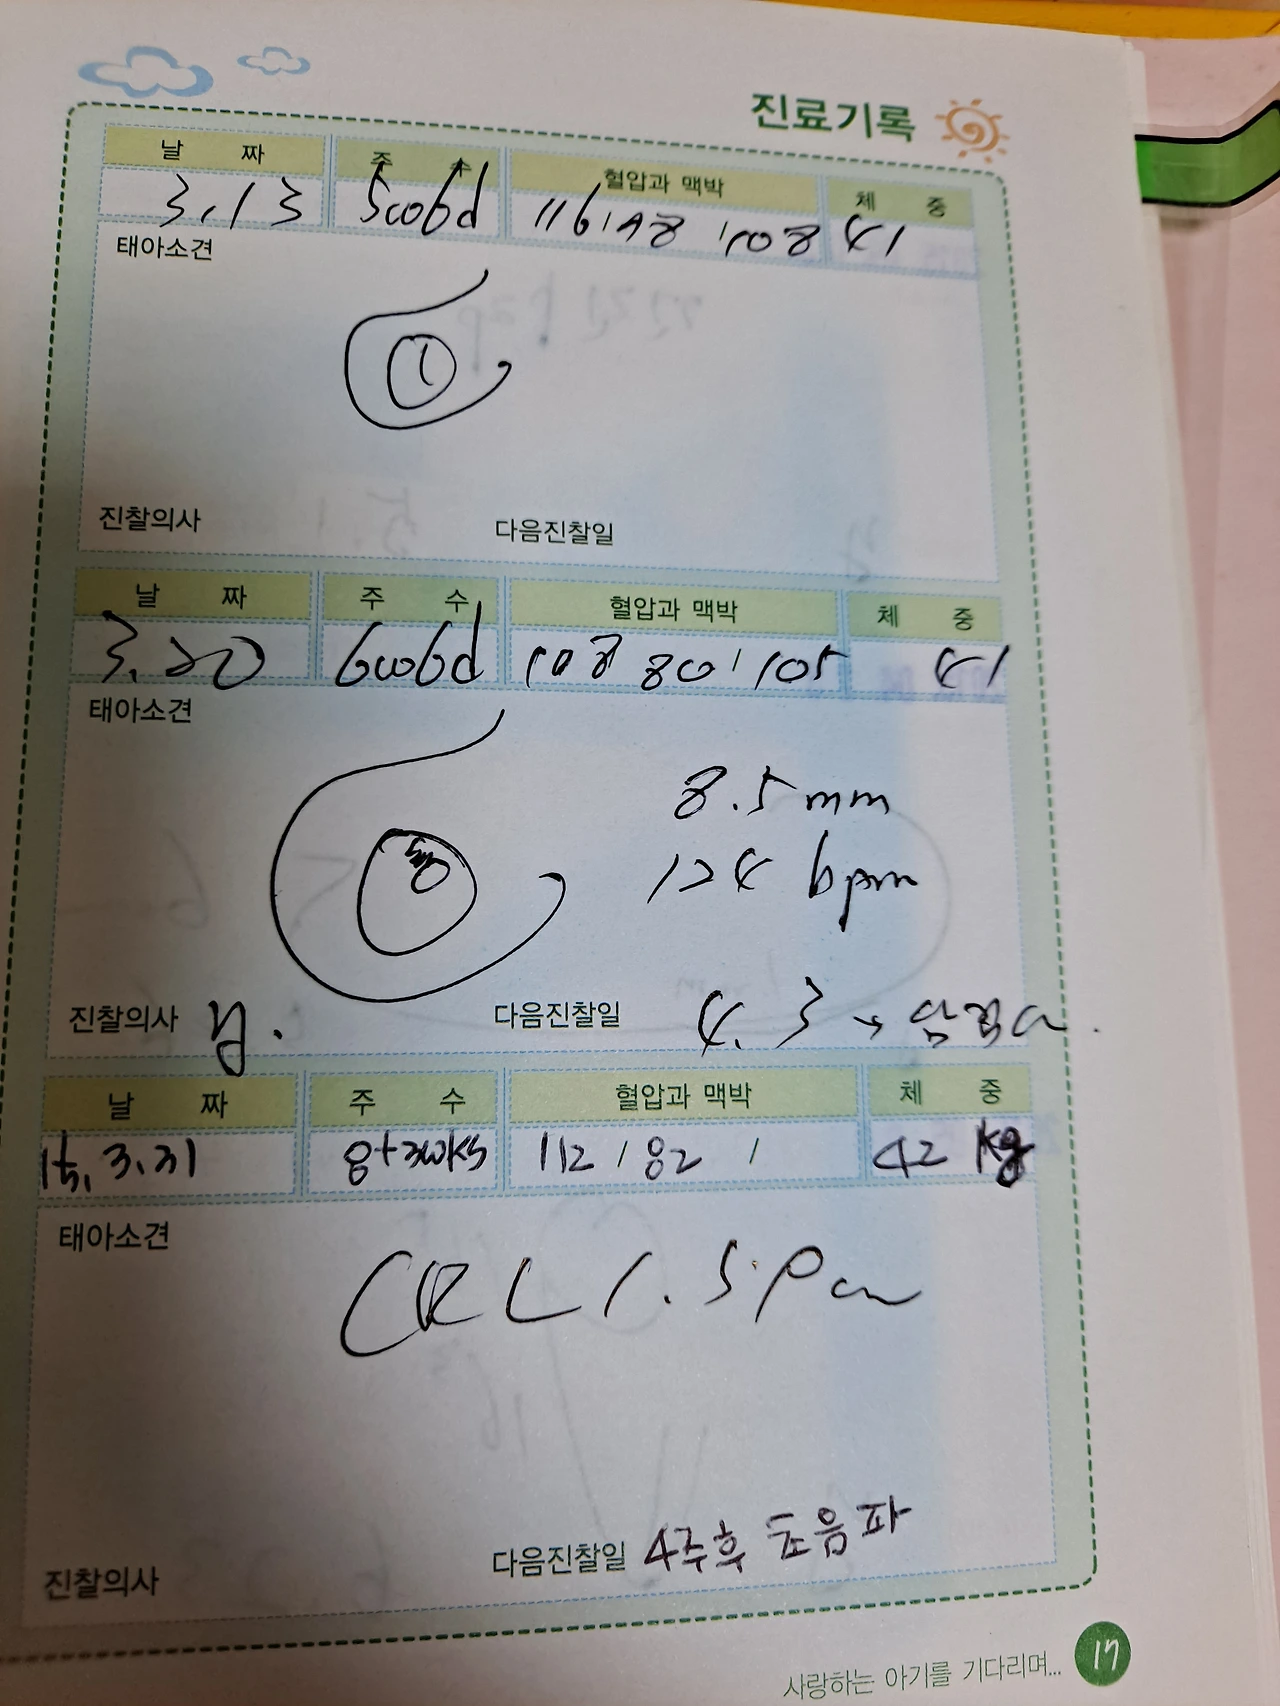 진료기록
날 짜 주 수 혈압과 맥박 체 중
3.13 5w6d 116/78 108 41
태아소견
진찰의사 다음진찰일
날 짜 주 수 혈압과 맥박 체 중
3.20 6w6d 108 80/105 41
태아소견
8.5mm
124 bpm
진찰의사 다음진찰일 4.3 →
날 짜 주 수 혈압과 맥박 체 중
15.3.31 8+3wks 112/82/ 42kg
태아소견
CRL 1.5
진찰의사 다음진찰일 4주후 초음파
사랑하는 아기를 기다리며... 17